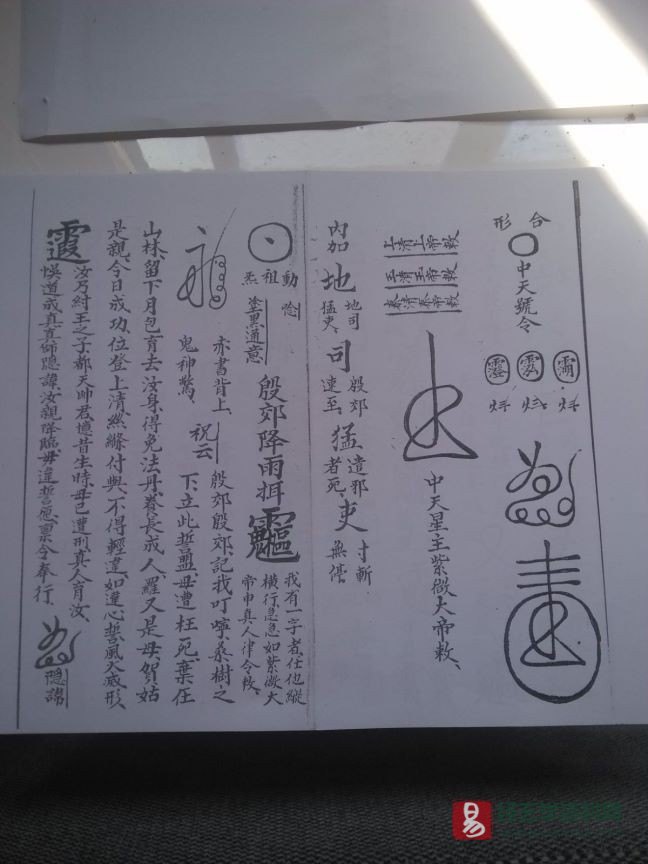 合形
中天號令
上清上帝敕
玉清玉帝敕
泰清泰帝敕
中天星主紫微大帝敕、
內加
地
地司猛吏、
司
殷郊速至、
猛
遣邪者死、
吏
寸斬無停
動祖炁
念
塗黑通意
殷郊降雨揖
我有一字者、任他縱
橫行、急急如紫微大
帝申真人律令敕、
亦書背上、
鬼神驚、
祝云
殷郊殷郊、記我叮嚀、桑樹之
下、立此誓盟、母遭枉死、棄在
山林、留下月包育去、汝身得免、法丹養長成人、羅又是母、賀姑
是親、今日成功、位登上清、絲縧付與、不得輕違、如違心誓、風火滅形、
汝乃紂王之子、都天帥君、憶昔生時、母已遭刑、真人育汝、
悞道成真、真師隱諱、汝親降臨、毋違誓愿、禀令奉行、
隱諱
易